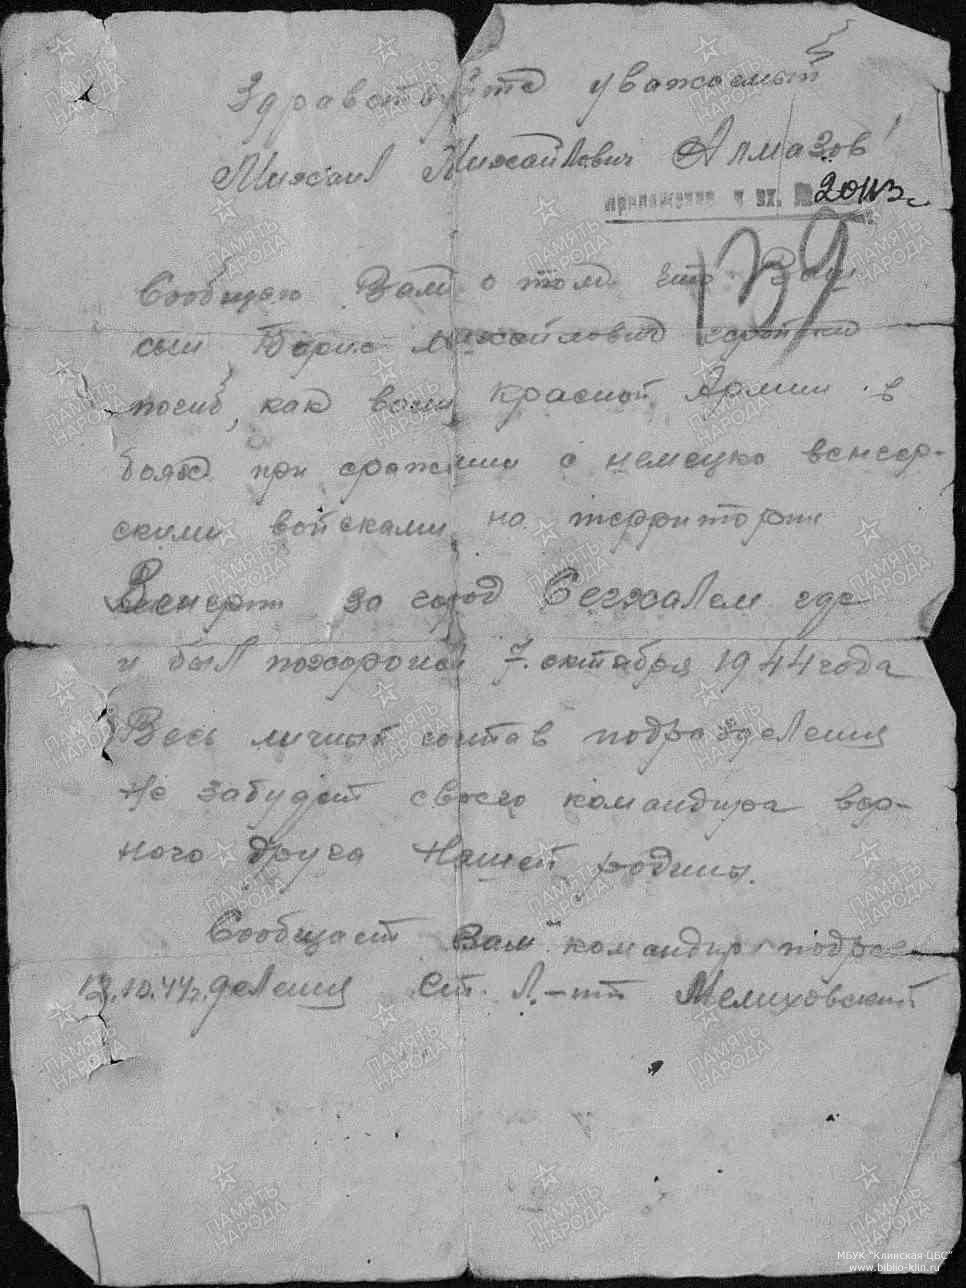 Здравствуйте уважаемый
Михаил Михайлович Алмазов!
приложение к вх. № 20113с
139
Сообщаю Вам о том что Ваш
сын Борис Михайлович геройски
погиб, как воин Красной Армии в
боях при сражении с немецко венгер-
скими войсками на территории
Венгрии за город Сегхалем где
и был похоронен 7. октября 1944 года
Весь личный состав подразделения
Не забудет своего командира вер-
ного друга Нашей родины.
Сообщает Вам командир подраз-
деления Ст. Л.-нт Мелиховский
13.10.44г.
ПАМЯТЬ НАРОДА
МБУК "Клинская ЦБС"
www.biblio-klin.ru